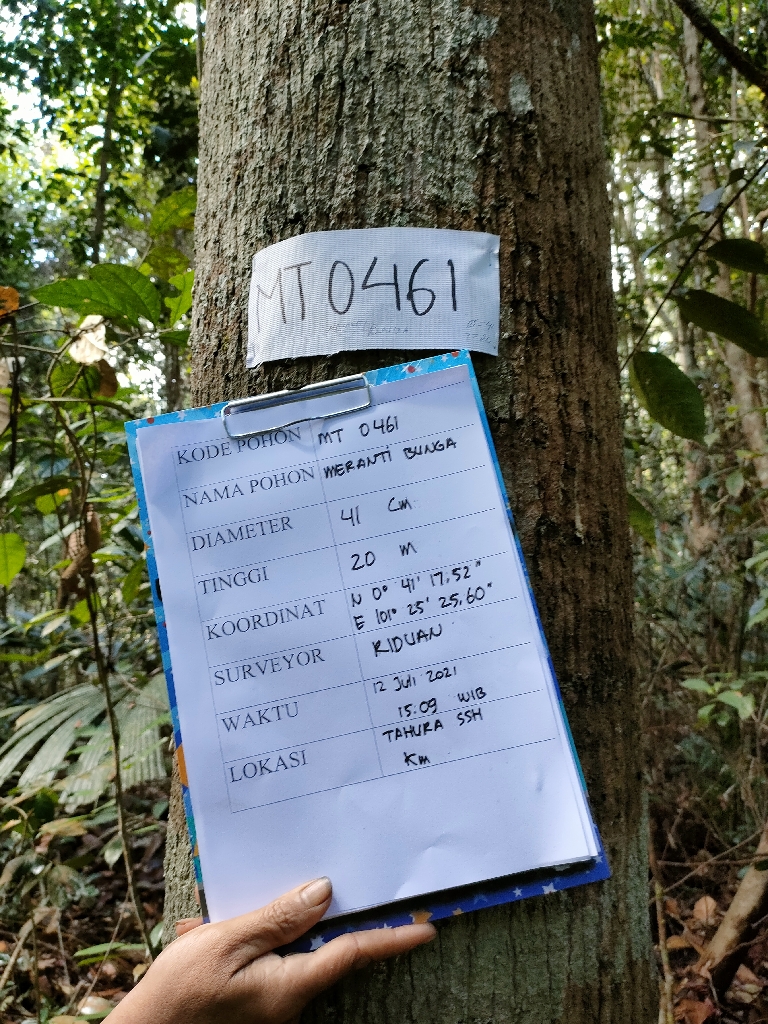 MT 0461
KODE POHON MT 0461
NAMA POHON MERANTI BUNGA
DIAMETER 41 Cm
TINGGI 20 m
KOORDINAT N 0° 41' 17,52"
E 101° 25' 25,60"
SURVEYOR RIDUAN
WAKTU 12 Juli 2021
15:09 WIB
LOKASI TAHURA SSH
Km